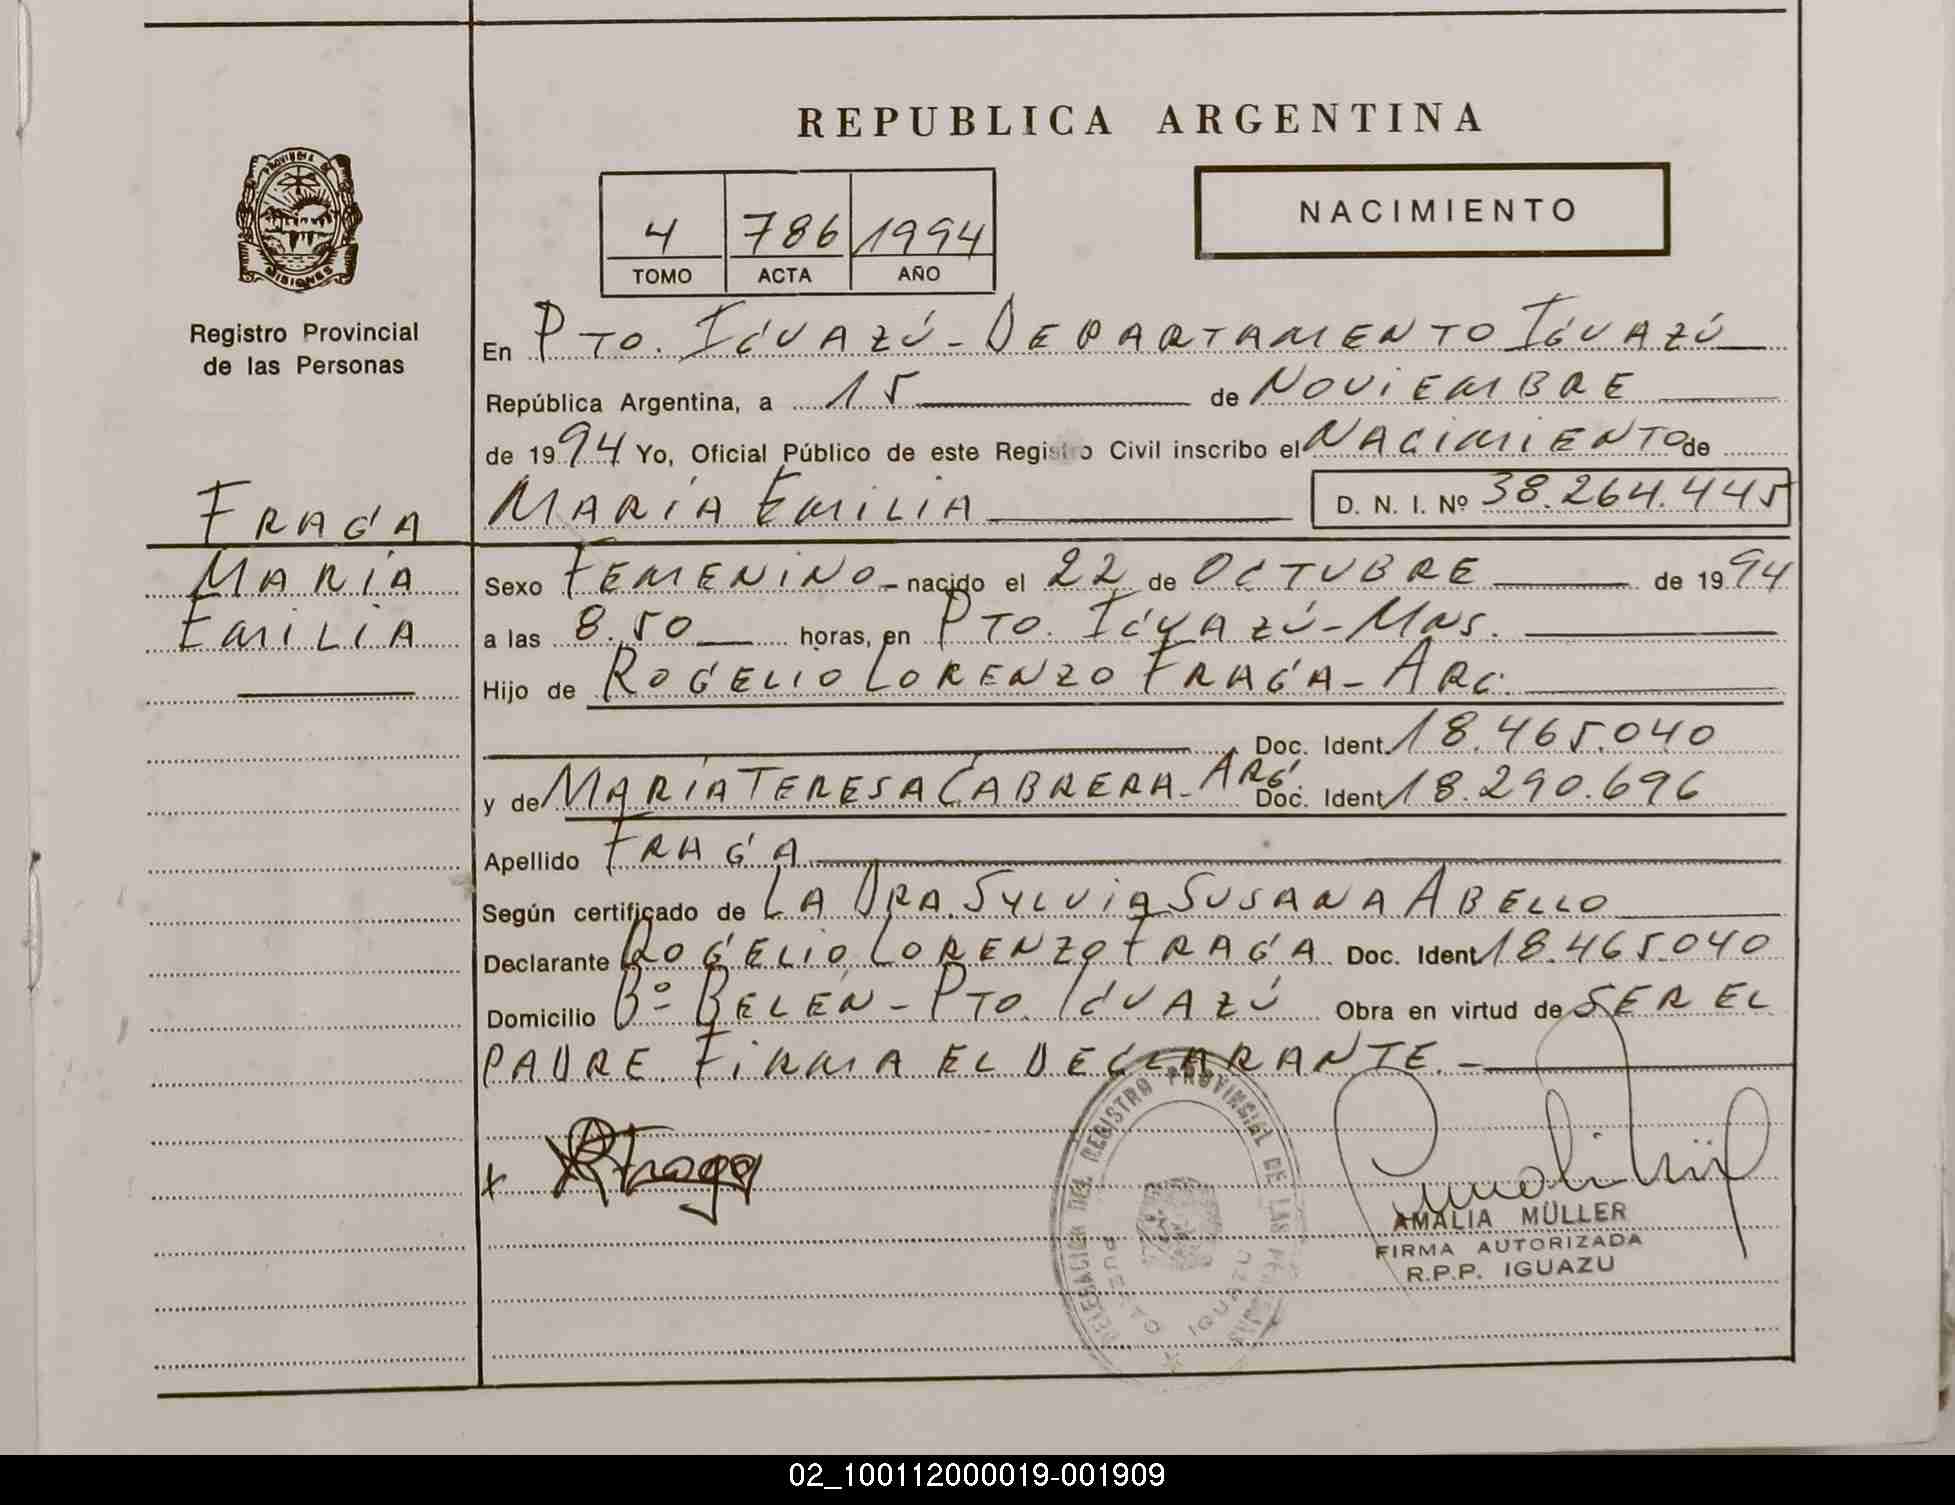 REPUBLICA ARGENTINA
PROVINCIA DE
MISIONES
Registro Provincial
de las Personas
4 786 1994
TOMO ACTA AÑO
NACIMIENTO
En PTO. IGUAZÚ - DEPARTAMENTO IGUAZÚ
República Argentina, a 15 de NOVIEMBRE
de 1994 Yo, Oficial Público de este Registro Civil inscribo el NACIMIENTO de
MARÍA EMILIA D. N. I. Nº 38.264.445
FRAGA
MARÍA
EMILIA
Sexo FEMENINO - nacido el 22 de OCTUBRE de 1994
a las 8.50 horas, en PTO. IGUAZÚ - MNS.
Hijo de ROGELIO LORENZO FRAGA - ARG.
Doc. Ident. 18.465.040
y de MARÍA TERESA CABRERA - ARG. Doc. Ident 18.290.696
Apellido FRAGA
Según certificado de LA DRA. SYLVIA SUSANA ABELLO
Declarante ROGELIO LORENZO FRAGA Doc. Ident 18.465.040
Domicilio Bº BELÉN - PTO. IGUAZÚ Obra en virtud de SER EL
PADRE FIRMA EL DECLARANTE. -
x RFraga
DELEGACION DEL REGISTRO PROVINCIAL DE LAS PERSONAS
PUERTO IGUAZU
AMALIA MÜLLER
FIRMA AUTORIZADA
R.P.P. IGUAZU
02_100112000019-001909